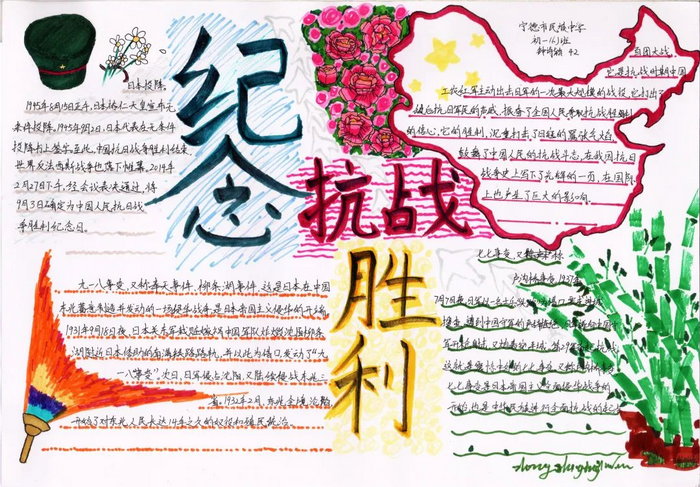 纪念
抗战
胜利
宁德市民族中学
初一(6)班
日本投降。
1945年8月15日正午,日本裕仁天皇宣布无
条件投降。1945年9月2日,日本代表在无条件
投降书上签字。至此,中国抗日战争胜利结束
世界反法西斯战争也落下帷幕。2014年
2月27日下午,经会议表决通过,将
9月3日确定为中国人民抗日战
争胜利纪念日。
百团大战。
它是抗战时期中国
工农红军主动出击日军的一次最大规模的战役,它打出了
敌后抗日军民的声威,振奋了全国人民争取抗战胜利
的信心,它的胜利,沉重打击了日寇的嚣张气焰
鼓舞了中国人民的抗战斗志,在我国抗日
战争史上写下了光辉的一页,在国际
上也产生了巨大的影响。
九一八事变,又称奉天事件、柳条湖事件。这是日本在中国
东北蓄意制造并发动的一场侵华战争,是日本帝国主义侵华的开端
1931年9月18日夜,日本关东军
湖附近日本修助的南满铁路路轨,并以此为借口,发动了“九
一八事变”,次日,日军侵占沈阳,又陆续侵占东北三
省。1932年2月,东北全境沦陷,
开始了对东北人民长达14年之久的奴役和殖民统治。
七七事变,又称
卢沟桥事变,1937年
7月7日夜,日军
搜查,遭到中国守军的
七七事变是日本帝国主义全面侵华战争的
开始,也是中华民族进行全面抗战的起点